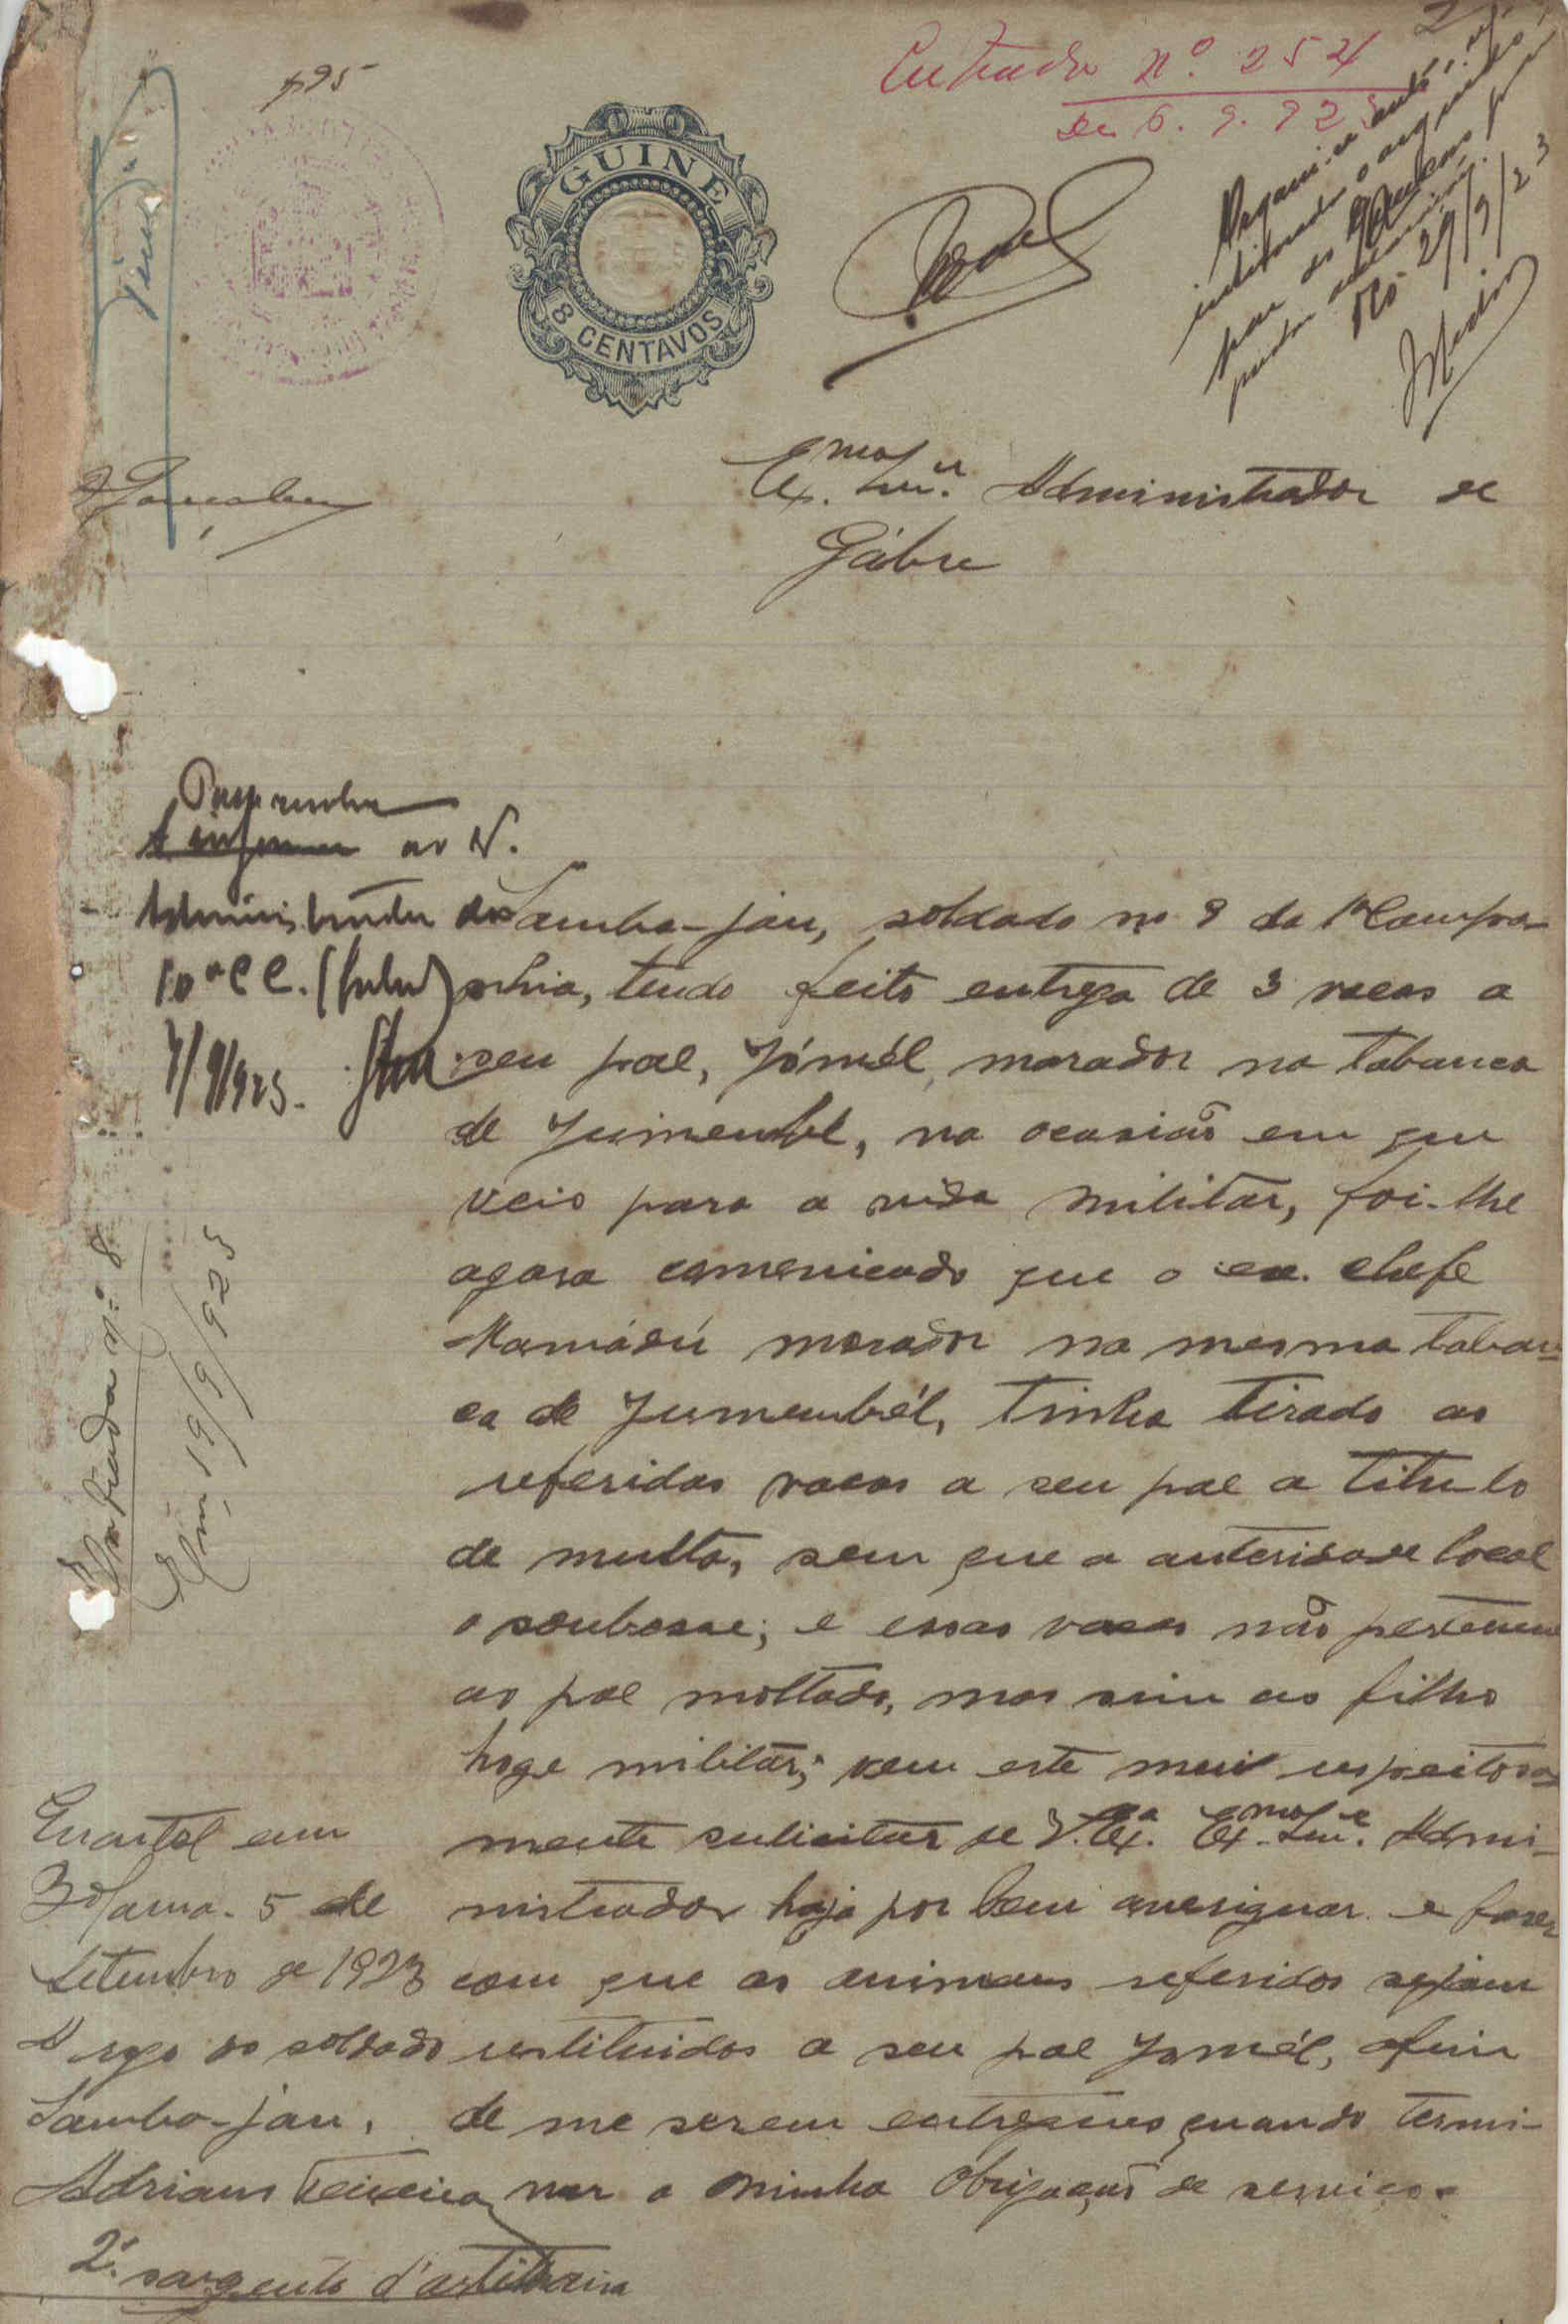 Entrada nº 254
de 6.9.923
GUINE
8 CENTAVOS
29/9/23
Exmo Snr. Administrador de
Gábu
ao
Administrador
7/9/923.
Samba-jau, soldado no 9 da 1ª Compa-
nhia, tendo feito entrega de 3 vacas a
seu pae, Jómél, morador na tabanca
de, na ocasião em que
veio para a vida militar, foi-lhe
agora comonicado que o ex. chefe
Mamádú morador na mesma taban-
ca de Jumembél, tinha tirado as
referidas vacas a seu pae a titulo
de multa, sem que a autoridade local
o soubesse; e essas vacas não pertencem
ao pae moltado, mas sim ao filho
hoge militar; vem este mui respeitosa
mente sulicitar de V. Exª. Exmo Snr. Admi-
nistrador haja por bem averiguar e fazer
com que os animaes referidos sejam
restituidos a seu pae Jomél, afim
de me serem entregues quando termi-
nar a minha obrigação de serviço.
Entrada nº 8
Em 19/9/923
Quartel em
Bolama. 5 de
Setembro de 1923
A rogo do soldado
Samba-jau.
Adriano Teixeira
2º. sargento d'artilharia